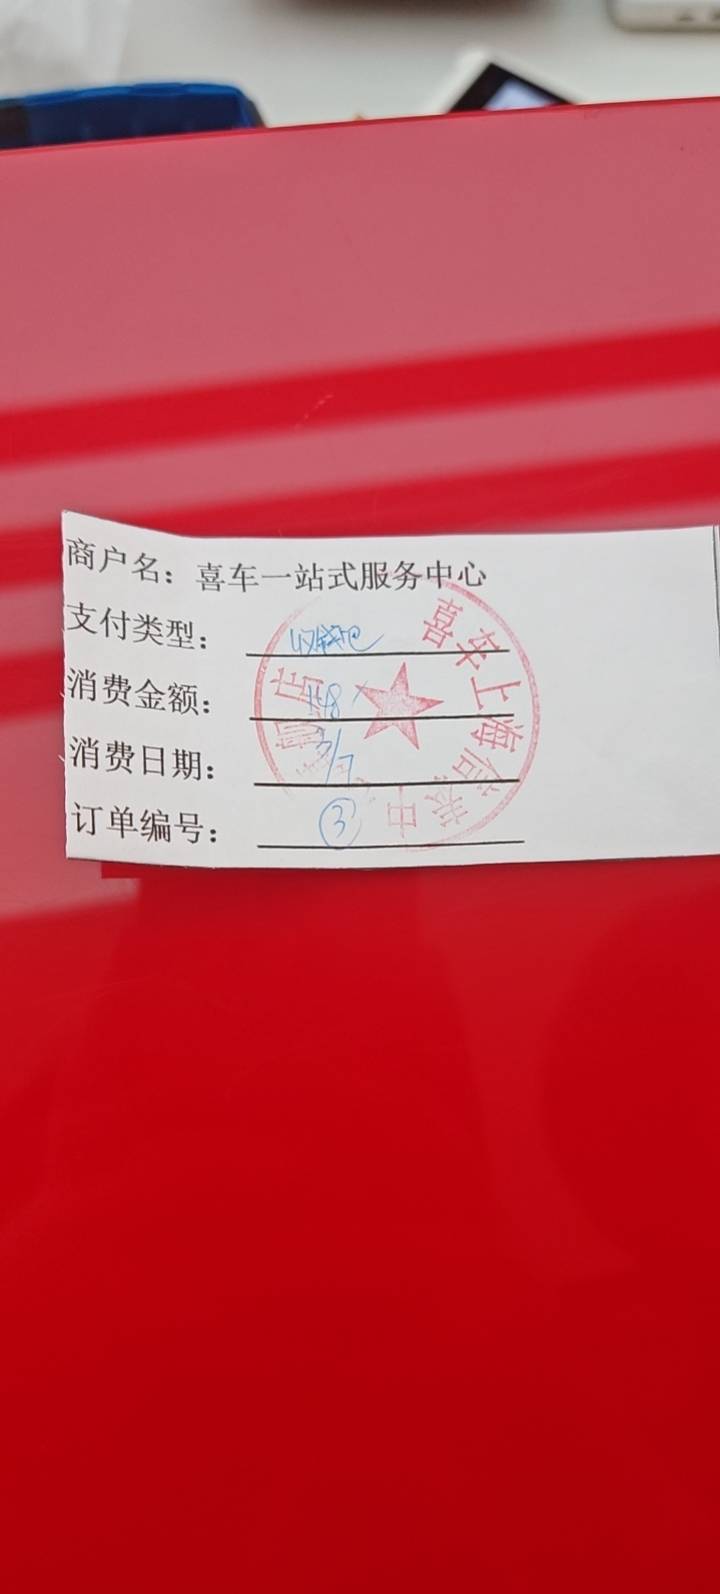 商户名：喜车一站式服务中心
支付类型：收钱吧
消费金额：
消费日期：
订单编号：③
喜车上海
店